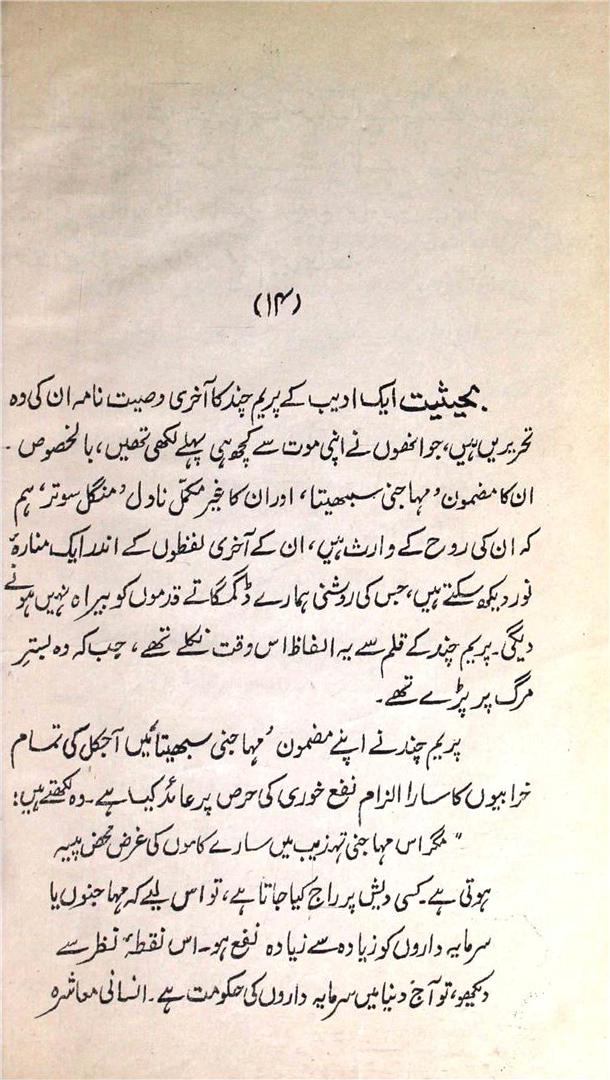 (۱۴)
بحیثیت ایک ادیب کے پریم چند کا آخری وصیت نامہ ان کی وہ
تحریریں ہیں، جو انھوں نے اپنی موت سے کچھ ہی پہلے لکھی تھیں، بالخصوص ۔
ان کا مضمون ’مہاجنی سبھیتا‘، اور ان کا غیر مکمل ناول ’منگل سوتر‘، ہم
کہ ان کی روح کے وارث ہیں، ان کے آخری لفظوں کے اندر ایک منارۂ
نور دیکھ سکتے ہیں، جس کی روشنی ہمارے ڈگمگاتے قدموں کو بیراہ نہیں ہونے
دیگی۔ پریم چند کے قلم سے یہ الفاظ اس وقت نکلے تھے، جب کہ وہ بستر
مرگ پر پڑے تھے۔
پریم چند نے اپنے مضمون ’مہاجنی سبھیتا‘ میں آجکل کی تمام
خرابیوں کا سارا الزام نفع خوری کی حرص پر عائد کیا ہے۔ وہ لکھتے ہیں:
”مگر اس مہاجنی تہذیب میں سارے کاموں کی غرض محض پیسہ
ہوتی ہے۔ کسی دیش پر راج کیا جاتا ہے، تو اس لیے کہ مہاجنوں یا
سرمایہ داروں کو زیادہ سے زیادہ نفع ہو۔ اس نقطۂ نظر سے
دیکھو، تو آج دنیا میں سرمایہ داروں کی حکومت ہے۔ انسانی معاشرہ